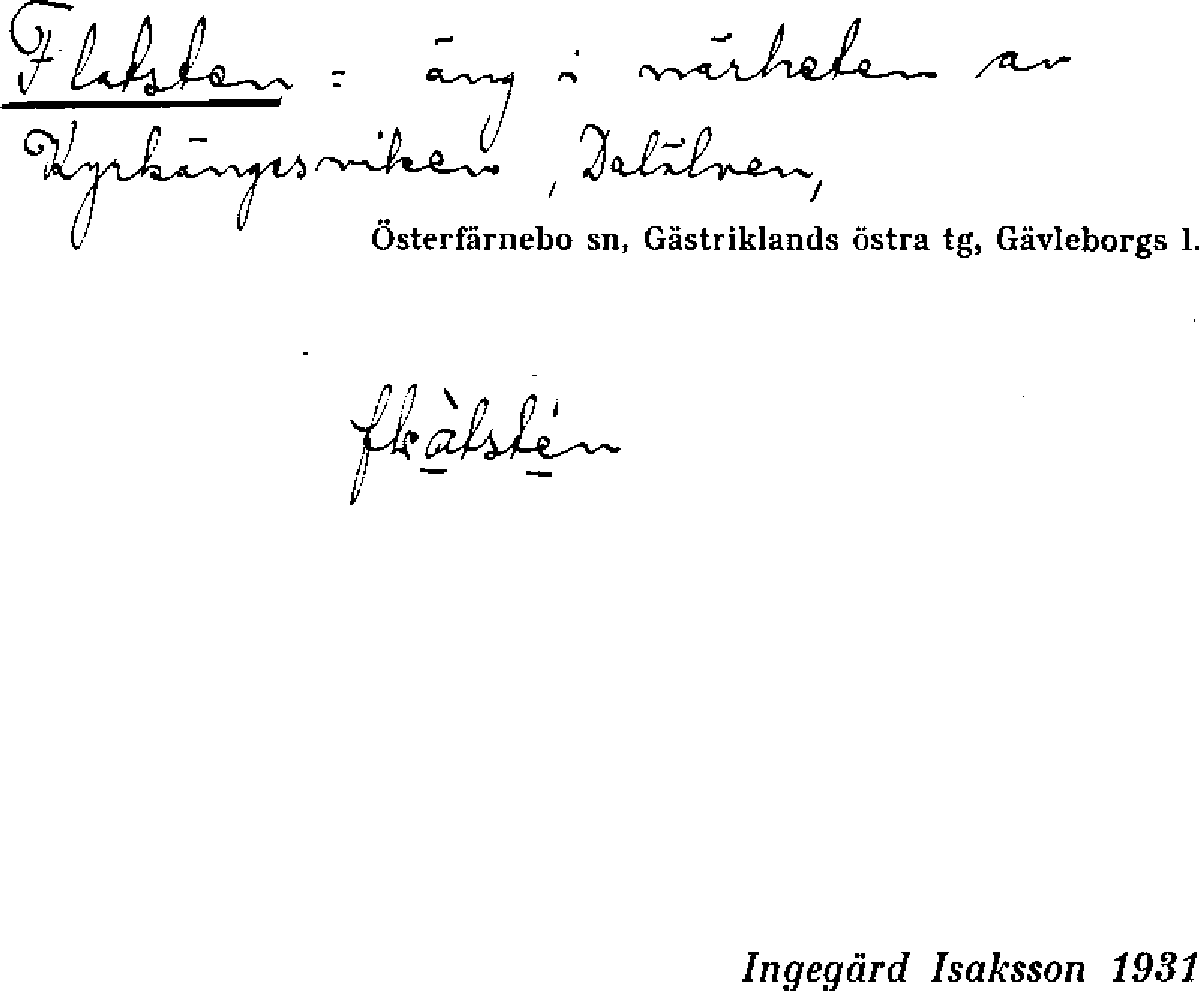 Flatsten = äng i närheten av
Kyrkängesviken, Dalälven,
Österfärnebo sn, Gästriklands östra tg, Gävleborgs l.
Ingegärd Isaksson 1931